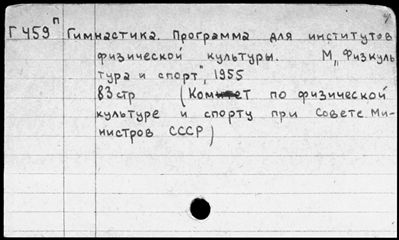 Г459п Гимнастика. Программа для институтов
физической культуры. М„Физкуль
тура и спорт", 1955
83стр (Комитет по физической
культуре и спорту при Совете Ми-
нистров СССР)